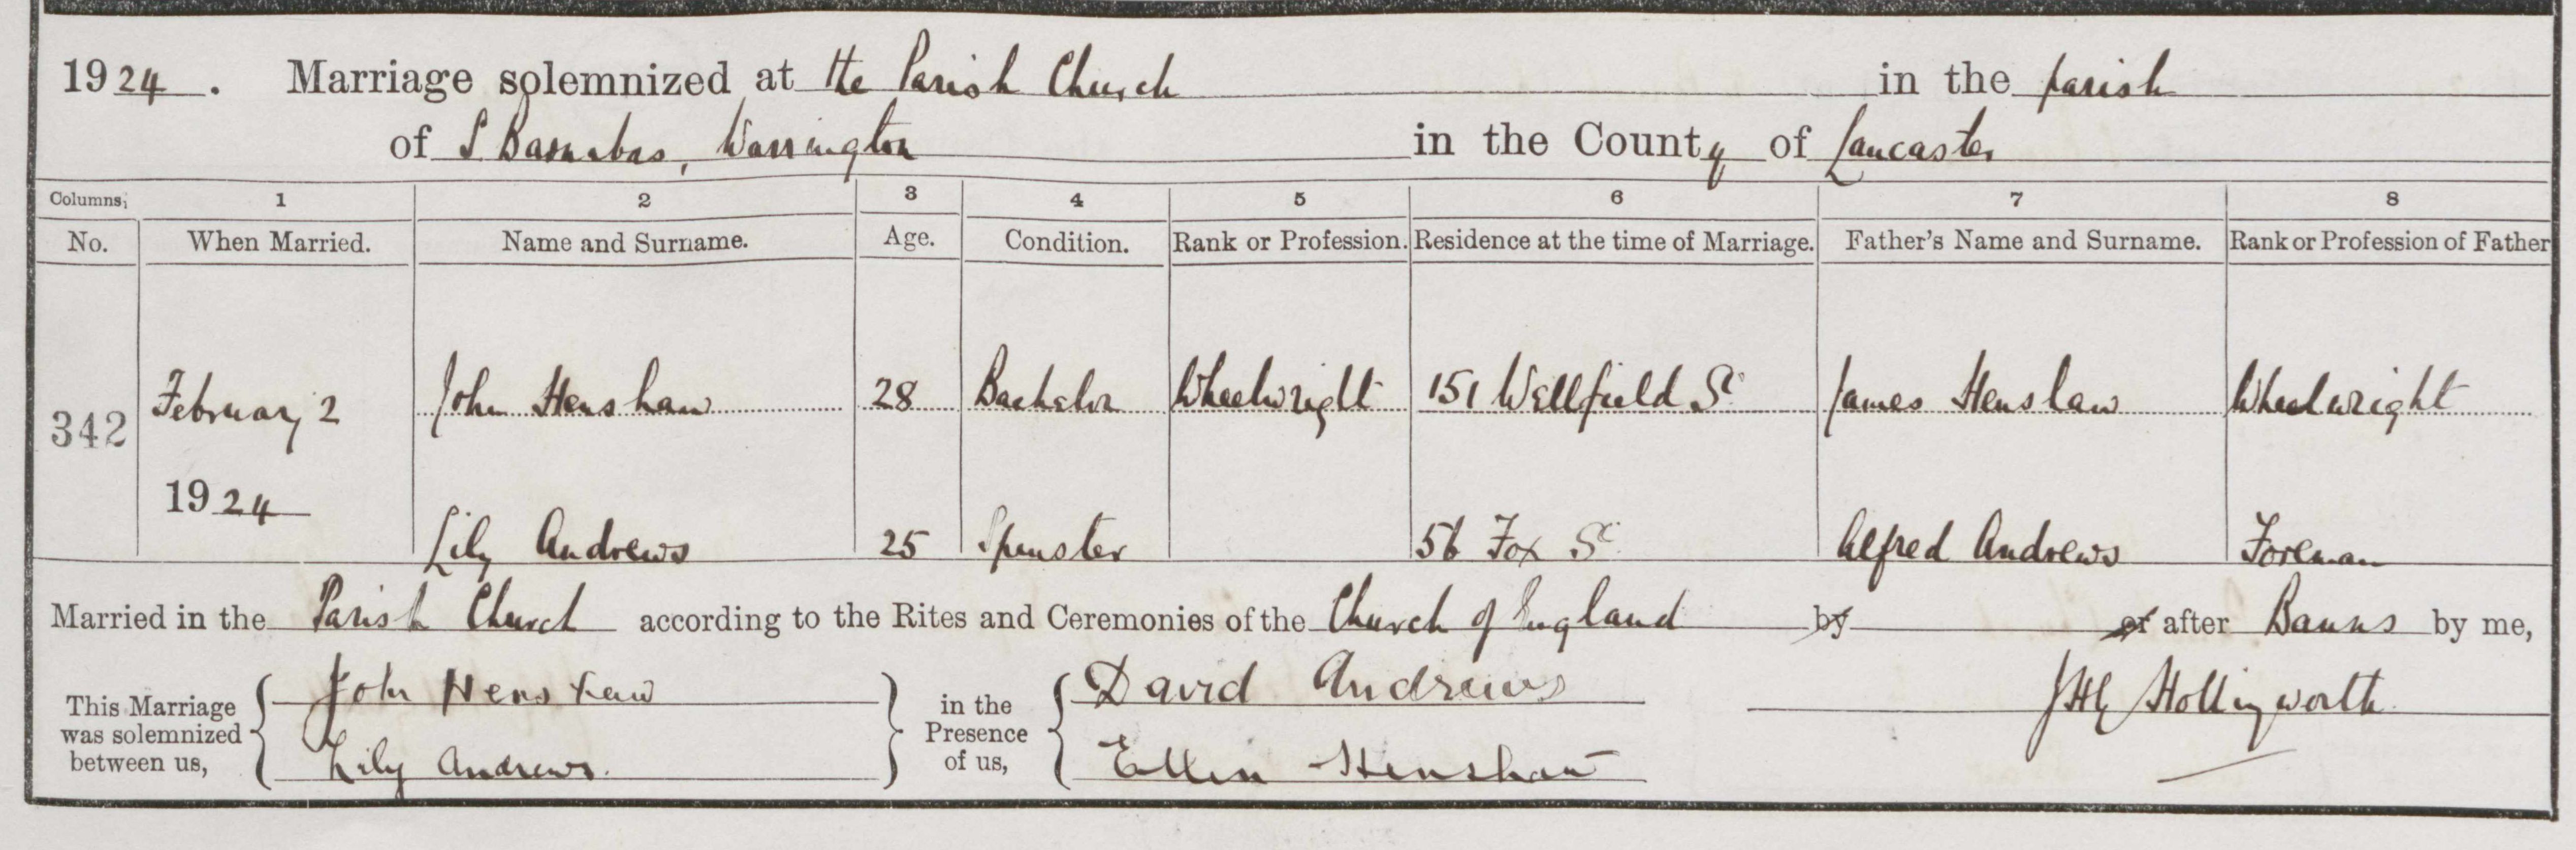 1924. Marriage solemnized at the Parish Church in the parish
of S Barnabas, Warrington in the County of Lancaster
Columns; 1 2 3 4 5 6 7 8
No. When Married. Name and Surname. Age. Condition. Rank or Profession. Residence at the time of Marriage. Father's Name and Surname. Rank or Profession of Father
342 February 2 John Henshaw 28 Bachelor Wheelwright 151 Wellfield St James Henshaw Wheelwright
1924
Lily Andrews 25 Spinster 56 Fox St Alfred Andrews Foreman
Married in the Parish Church according to the Rites and Ceremonies of the Church of England by or after Banns by me,
This Marriage was solemnized between us, John Henshaw in the Presence of us, David Andrews JHE Hollingworth
Lily Andrews. Ellen Henshaw